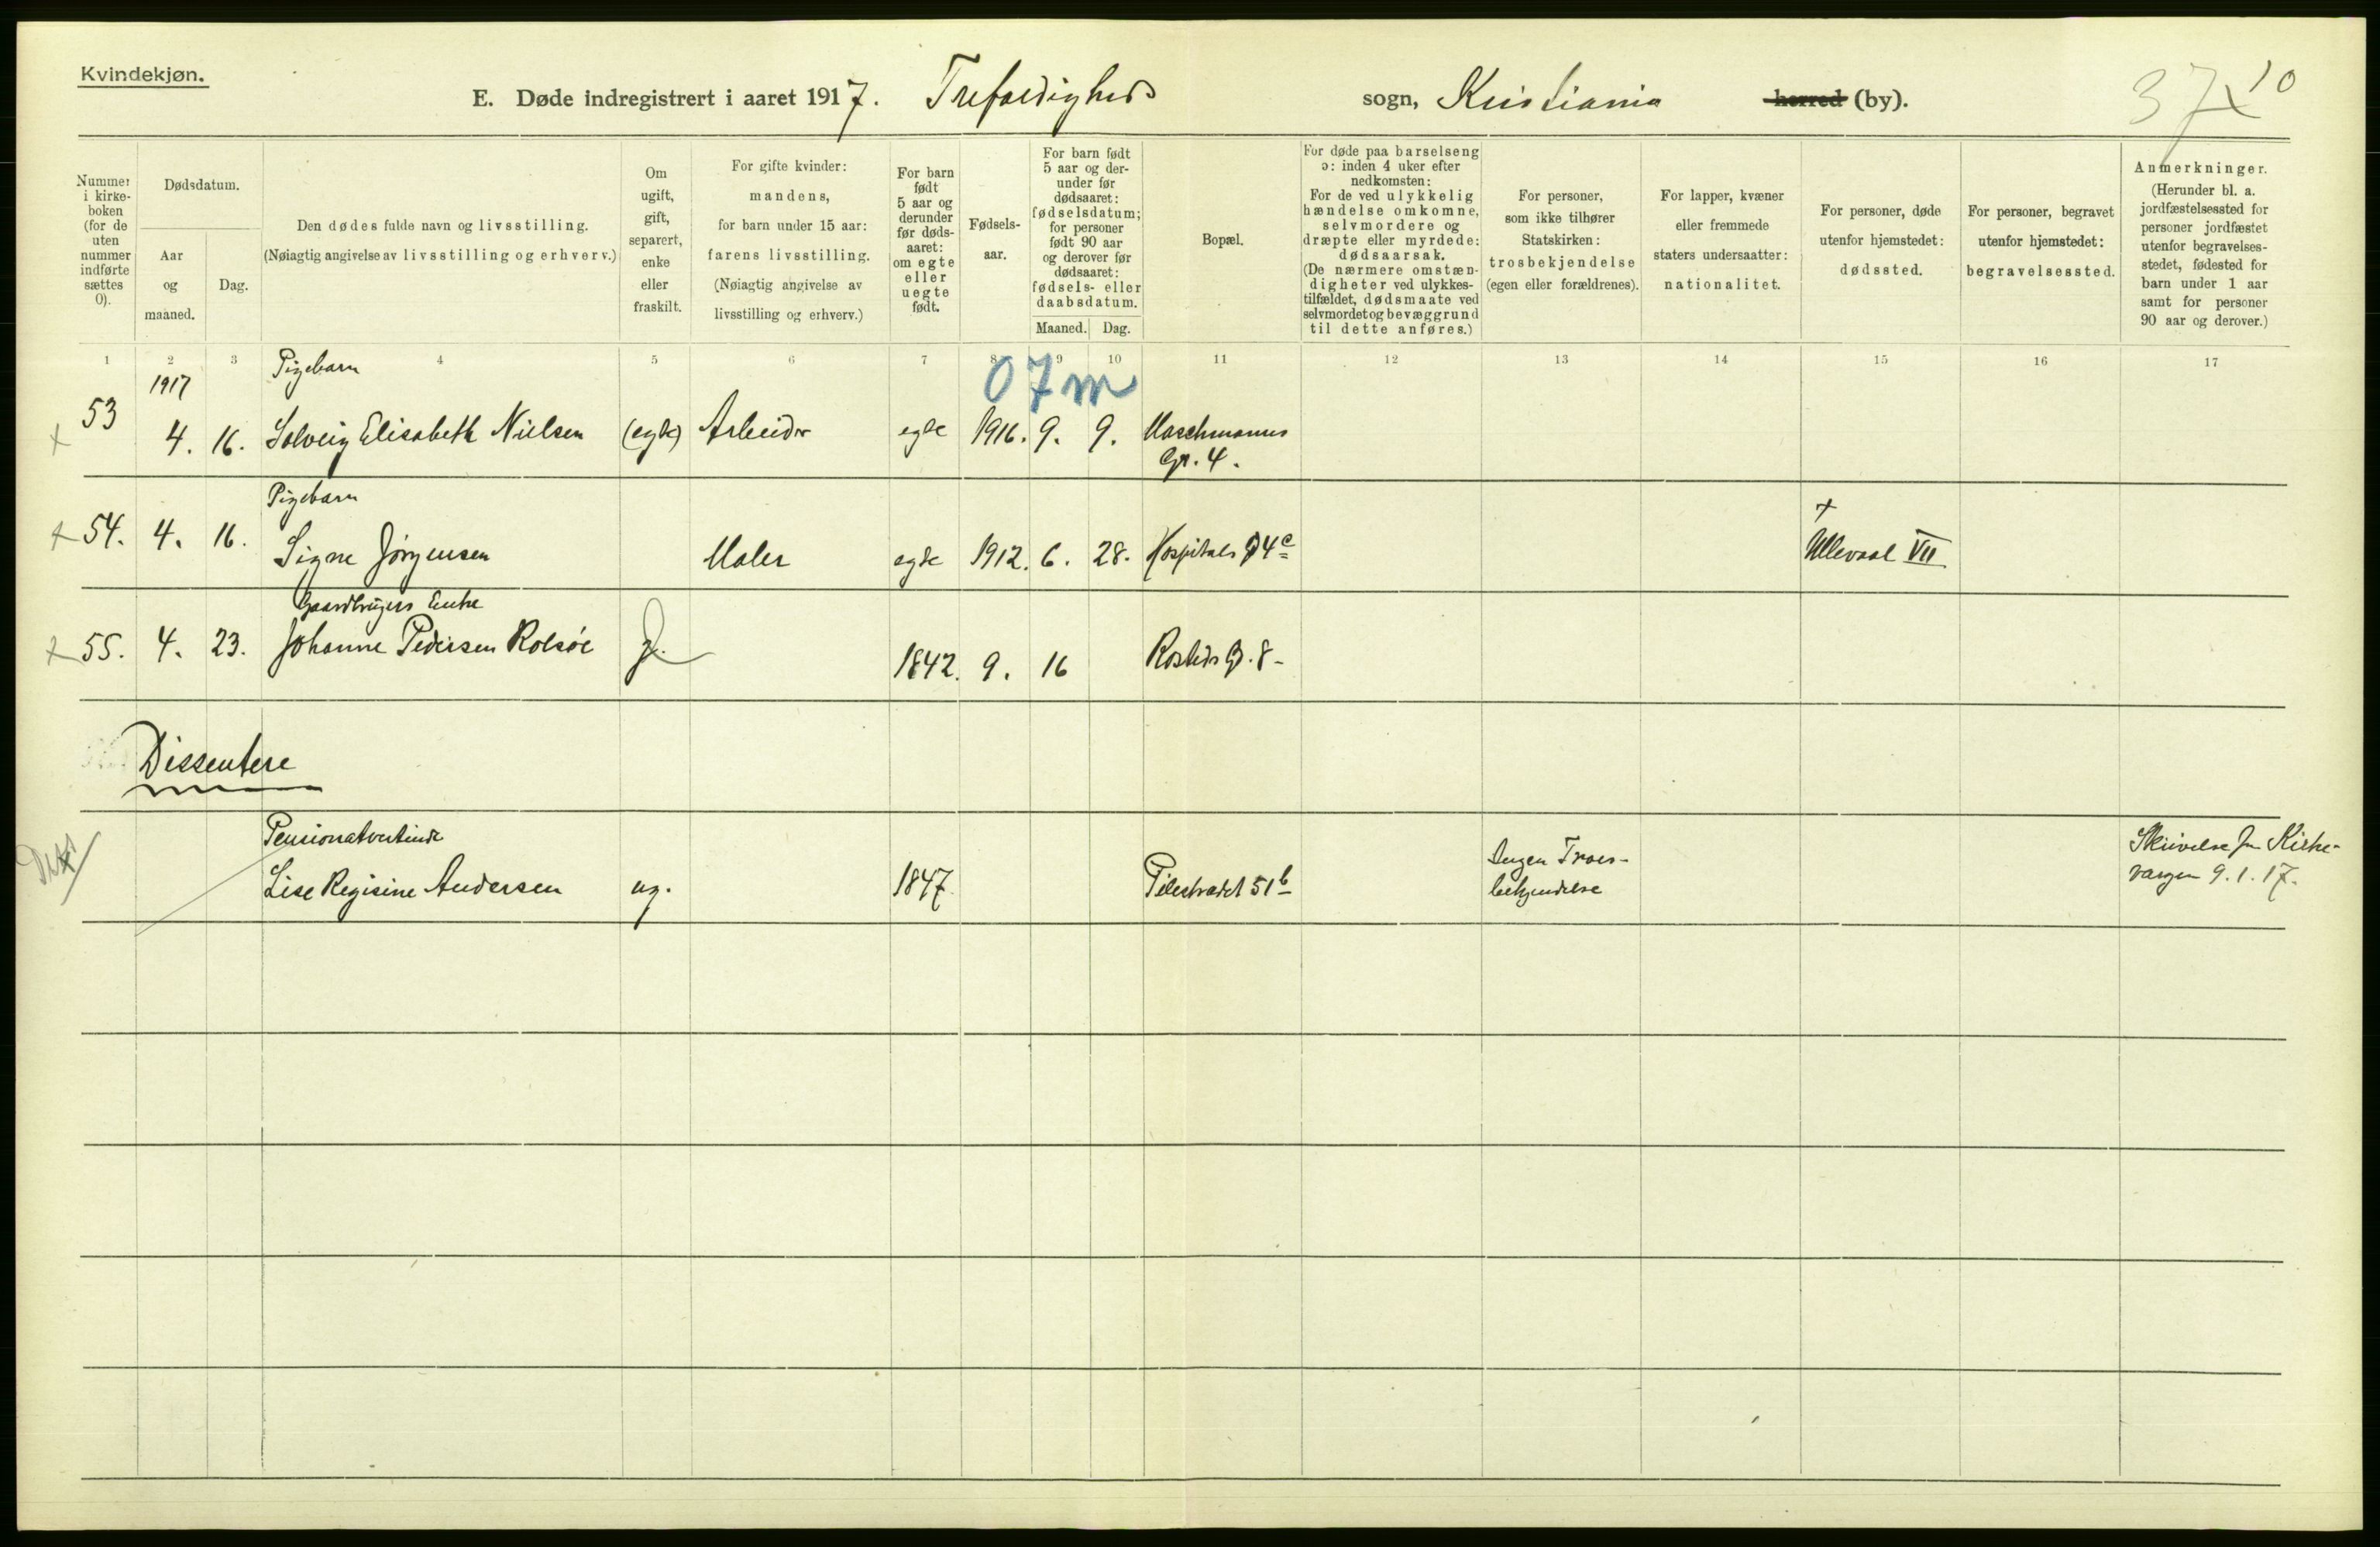 Kvindekjøn.
E. Døde indregistrert i aaret 1917. Trefoldigheds sogn, Kristiania herred (by).
37 10
Nummer i kirke-boken (for de uten nummer indførte sættes 0).
Dødsdatum.
Aar og maaned.
Dag.
Den dødes fulde navn og livsstilling.
(Nøiagtig angivelse av livsstilling og erhverv.)
Om ugift, gift, separert, enke eller fraskilt.
For gifte kvinder: mandens, for barn under 15 aar: farens livsstilling.
(Nøiagtig angivelse av livsstilling og erhverv.)
For barn født 5 aar og derunder før døds-aaret: om egte eller uegte født.
Fødsels-aar.
For barn født 5 aar og der-under før dødsaaret: fødselsdatum; for personer født 90 aar og derover før dødsaaret: fødsels- eller daabsdatum.
Maaned. Dag.
Bopæl.
For døde paa barselseng ɔ: inden 4 uker efter nedkomsten:
For de ved ulykkelig hændelse omkomne, selvmordere og dræpte eller myrdede: dødsaarsak.
(De nærmere omstæn-digheter ved ulykkes-tilfældet, dødsmaate ved selvmordet og bevæggrund til dette anføres.)
For personer, som ikke tilhører Statskirken: trosbekjendelse (egen eller forældrenes).
For lapper, kvæner eller fremmede staters undersaatter: nationalitet.
For personer, døde utenfor hjemstedet: dødssted.
For personer, begravet utenfor hjemstedet: begravelsessted.
Anmerkninger.
(Herunder bl. a. jordfæstelsessted for personer jordfæstet utenfor begravelses-stedet, fødested for barn under 1 aar samt for personer 90 aar og derover.)
1 2 3 4 5 6 7 8 9 10 11 12 13 14 15 16 17
1917 Pigebarn 07m
53 4. 16. Solveig Elisabeth Nielsen (egte) Arbeider egte 1916. 9. 9. Maschmanns
Gr. 4.
Pigebarn
54. 4. 16. Signe Jørgensen Maler egte 1912. 6. 28. Hospitals 4c Ullevaal VII
Gaardbrugers Enke
55. 4. 23. Johanne Pedersen Rolsøe 1842. 9. 16 Rosteds G. 8
Dissentere
Pensionatvertinde
Lise Regisine Andersen ug. 1847 Pilestrædet 51b
Ingen Troes-
bekjendelse
Skrivelse fra Kirke-
vargen 9.1.17.